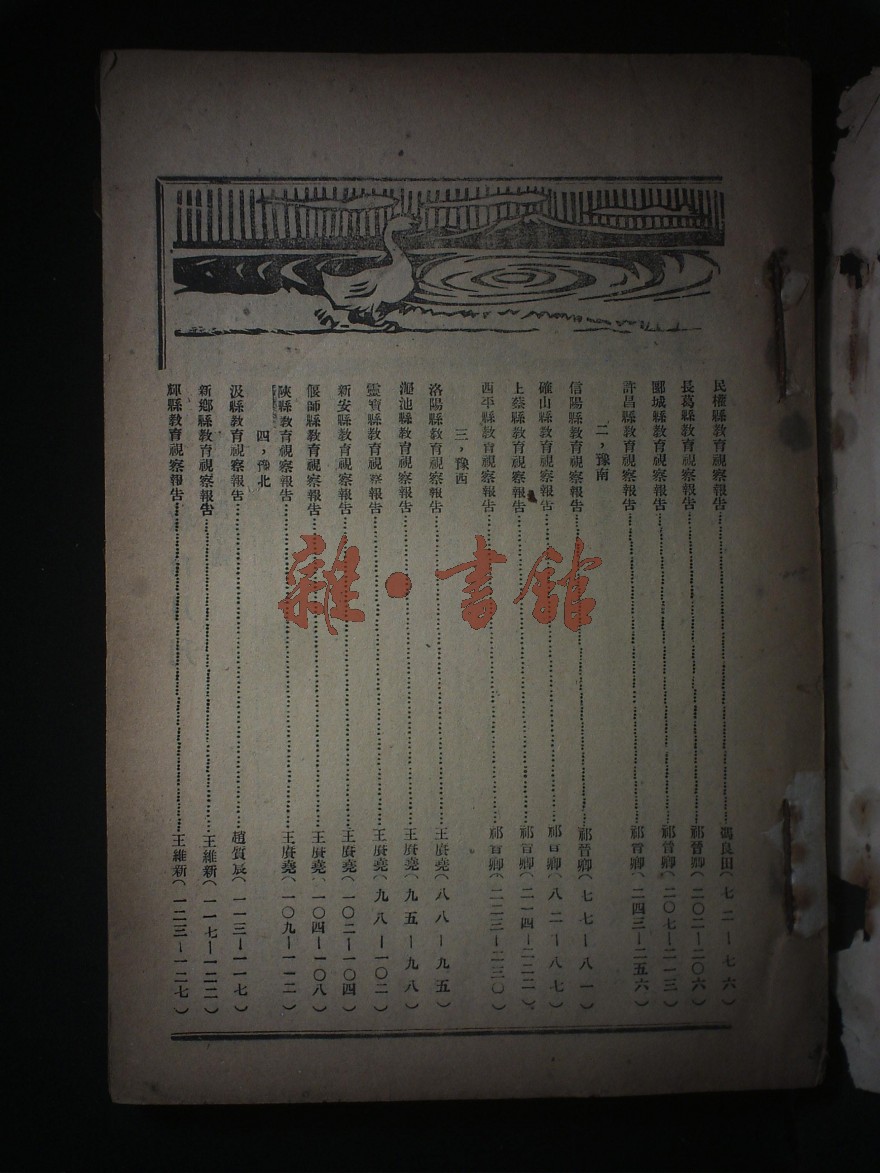 民權縣教育視察報告……馮良田(七二—七六)
長葛縣教育視察報告……祁晉卿(二〇二—二〇六)
郾城縣教育視察報告……祁晉卿(二〇七—二一三)
許昌縣教育視察報告……祁晉卿(二四三—二五六)
二，豫南
信陽縣教育視察報告……祁晉卿(七七—八一)
確山縣教育視察報告……祁晉卿(八二—八七)
上蔡縣教育視察報告……祁晉卿(二一四—二二二)
西平縣教育視察報告……祁晉卿(二二三—二三〇)
三，豫西
洛陽縣教育視察報告……王賡堯(八八—九五)
澠池縣教育視察報告……王賡堯(九五—九八)
靈寶縣教育視察報告……王賡堯(九八—一〇二)
新安縣教育視察報告……王賡堯(一〇二—一〇四)
偃師縣教育視察報告……王賡堯(一〇四—一〇八)
陝縣教育視察報告……王賡堯(一〇九—一一二)
四，豫北
汲縣教育視察報告……趙質宸(一一三—一一七)
新鄉縣教育視察報告……王維新(一一七—一二二)
輝縣教育視察報告……王維新(一二三—一二七)
雜·書館